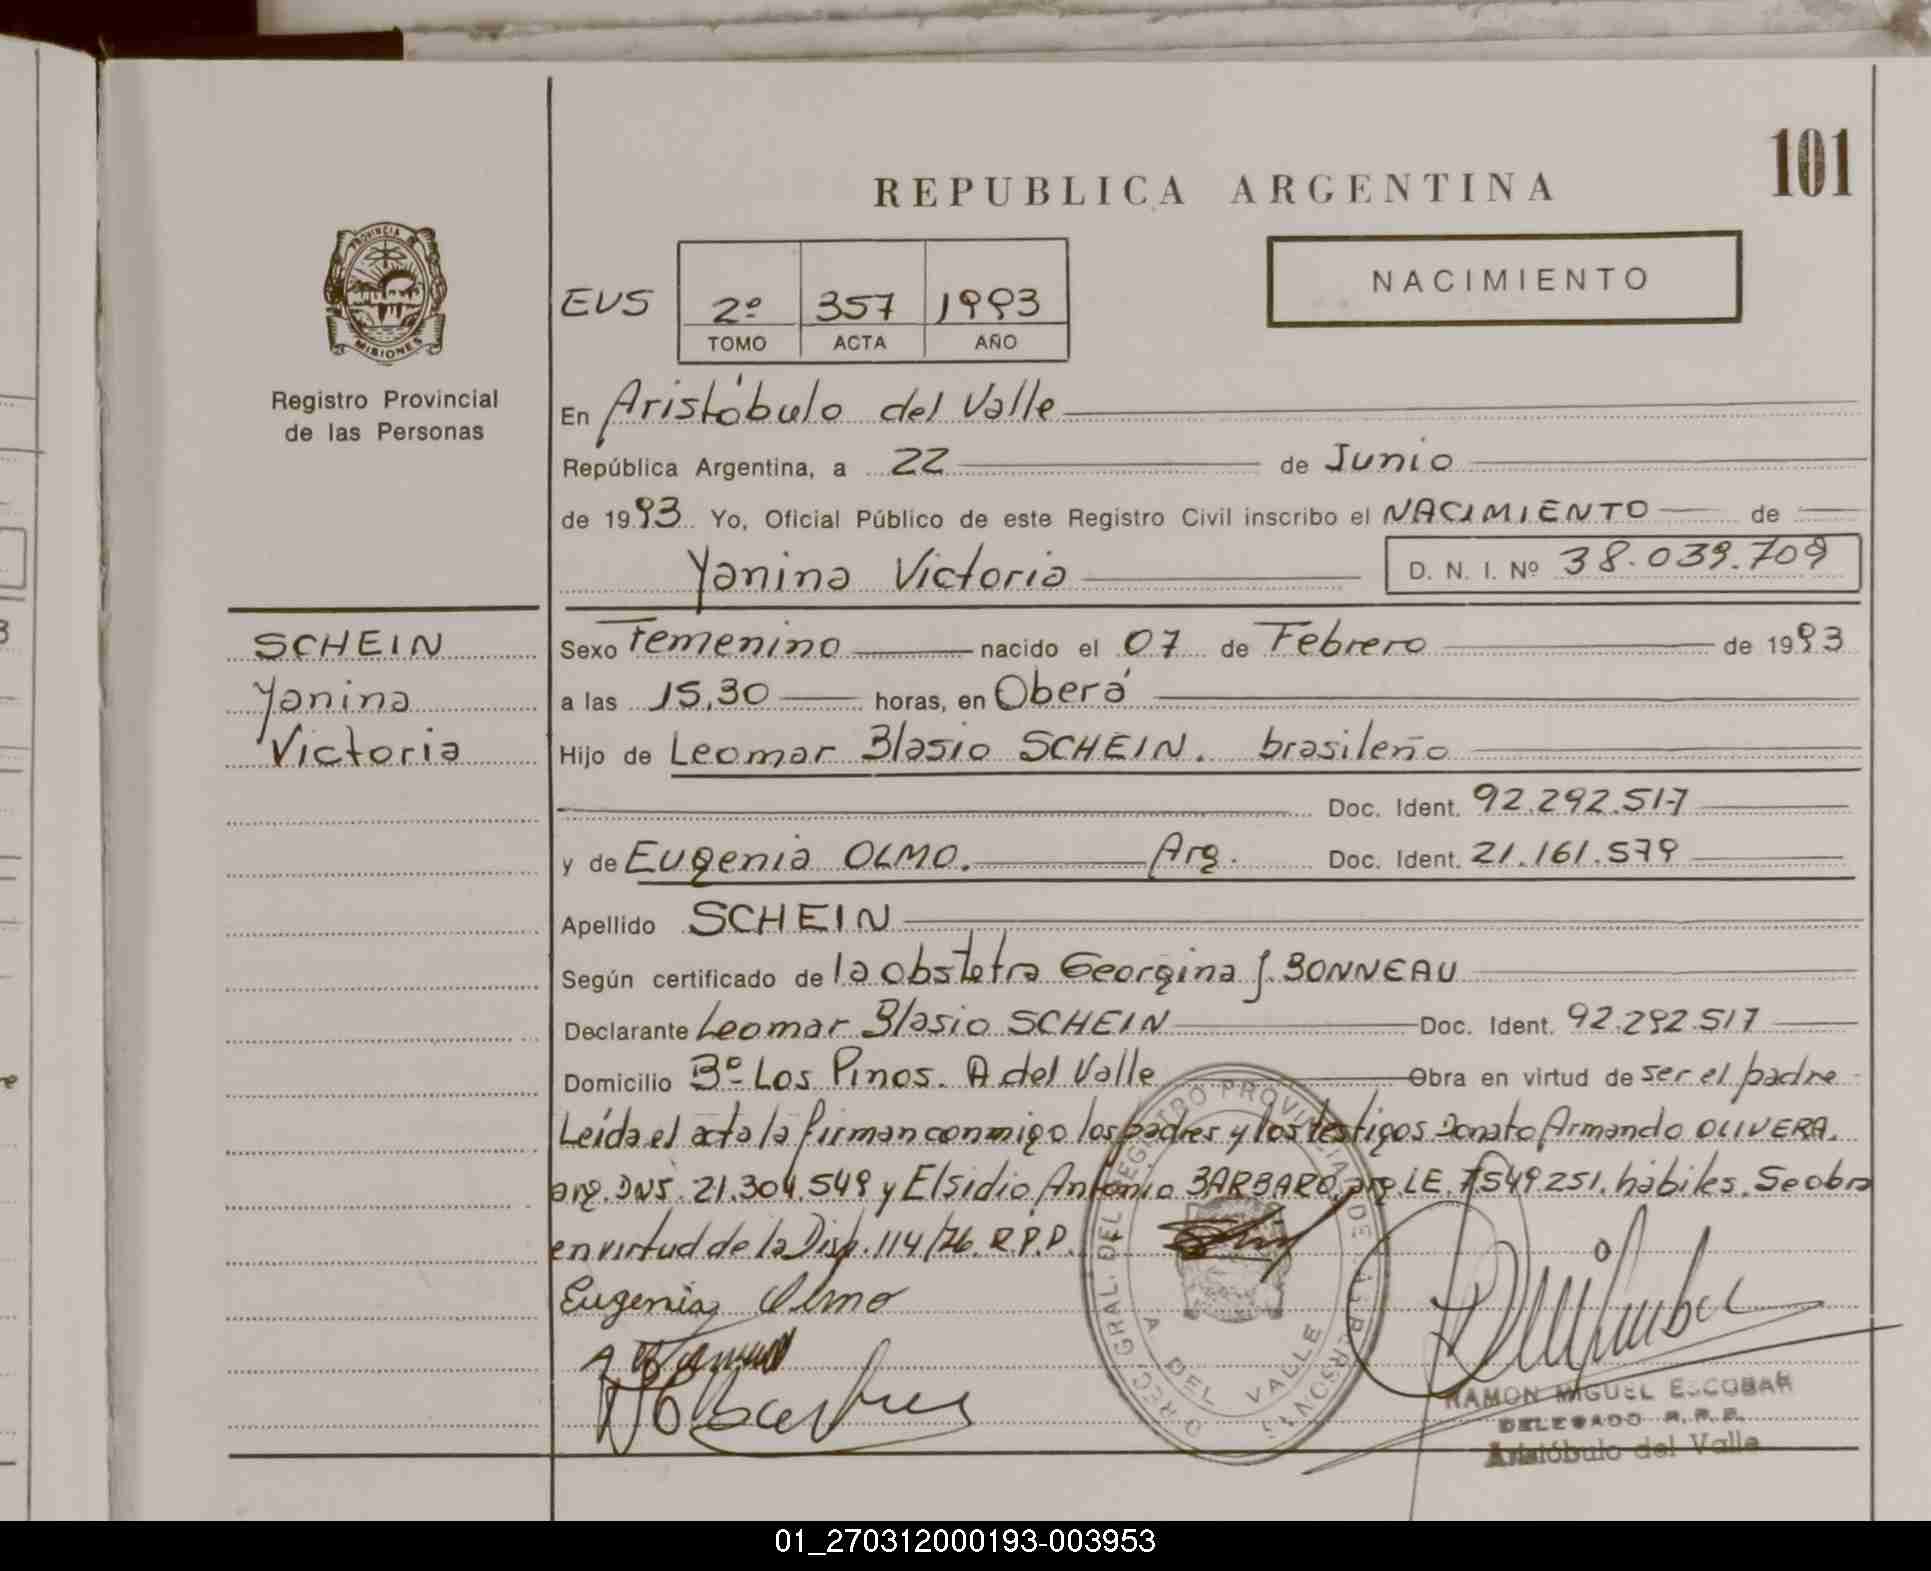 101
REPUBLICA ARGENTINA
PROVINCIA DE
MISIONES
Registro Provincial
de las Personas
NACIMIENTO
EVS 2º 357 1993
TOMO ACTA AÑO
En Aristóbulo del Valle
República Argentina, a 22 de Junio
de 1993 Yo, Oficial Público de este Registro Civil inscribo el NACIMIENTO de
Yanina Victoria D. N. I. Nº 38.039.709
SCHEIN
Yanina
Victoria
Sexo Femenino nacido el 07 de Febrero de 1993
a las 15,30 horas, en Oberá
Hijo de Leomar Blasio SCHEIN. brasileño
Doc. Ident. 92.292.517
y de Eugenia OLMO. Arg. Doc. Ident. 21.161.579
Apellido SCHEIN
Según certificado de la obstetra Georgina J. BONNEAU
Declarante Leomar Blasio SCHEIN Doc. Ident. 92.292.517
Domicilio Bº Los Pinos. A del Valle Obra en virtud de ser el padre
Leída el acta la firman conmigo los padres y los testigos Donato Armando OLIVERA.
arg. DNI. 21.304.549 y Elsidio Antonio BARBARO, arg LE. 7549251. hábiles. Se obra
en virtud de la Disp. 114/76. R.P.P.
Eugenia Olmo
DIREC. GRAL. DEL REGISTRO PROVINCIAL DE LAS PERSONAS
A DEL VALLE
RAMON MIGUEL ESCOBAR
DELEGADO R.P.P.
Aristóbulo del Valle
01_270312000193-003953